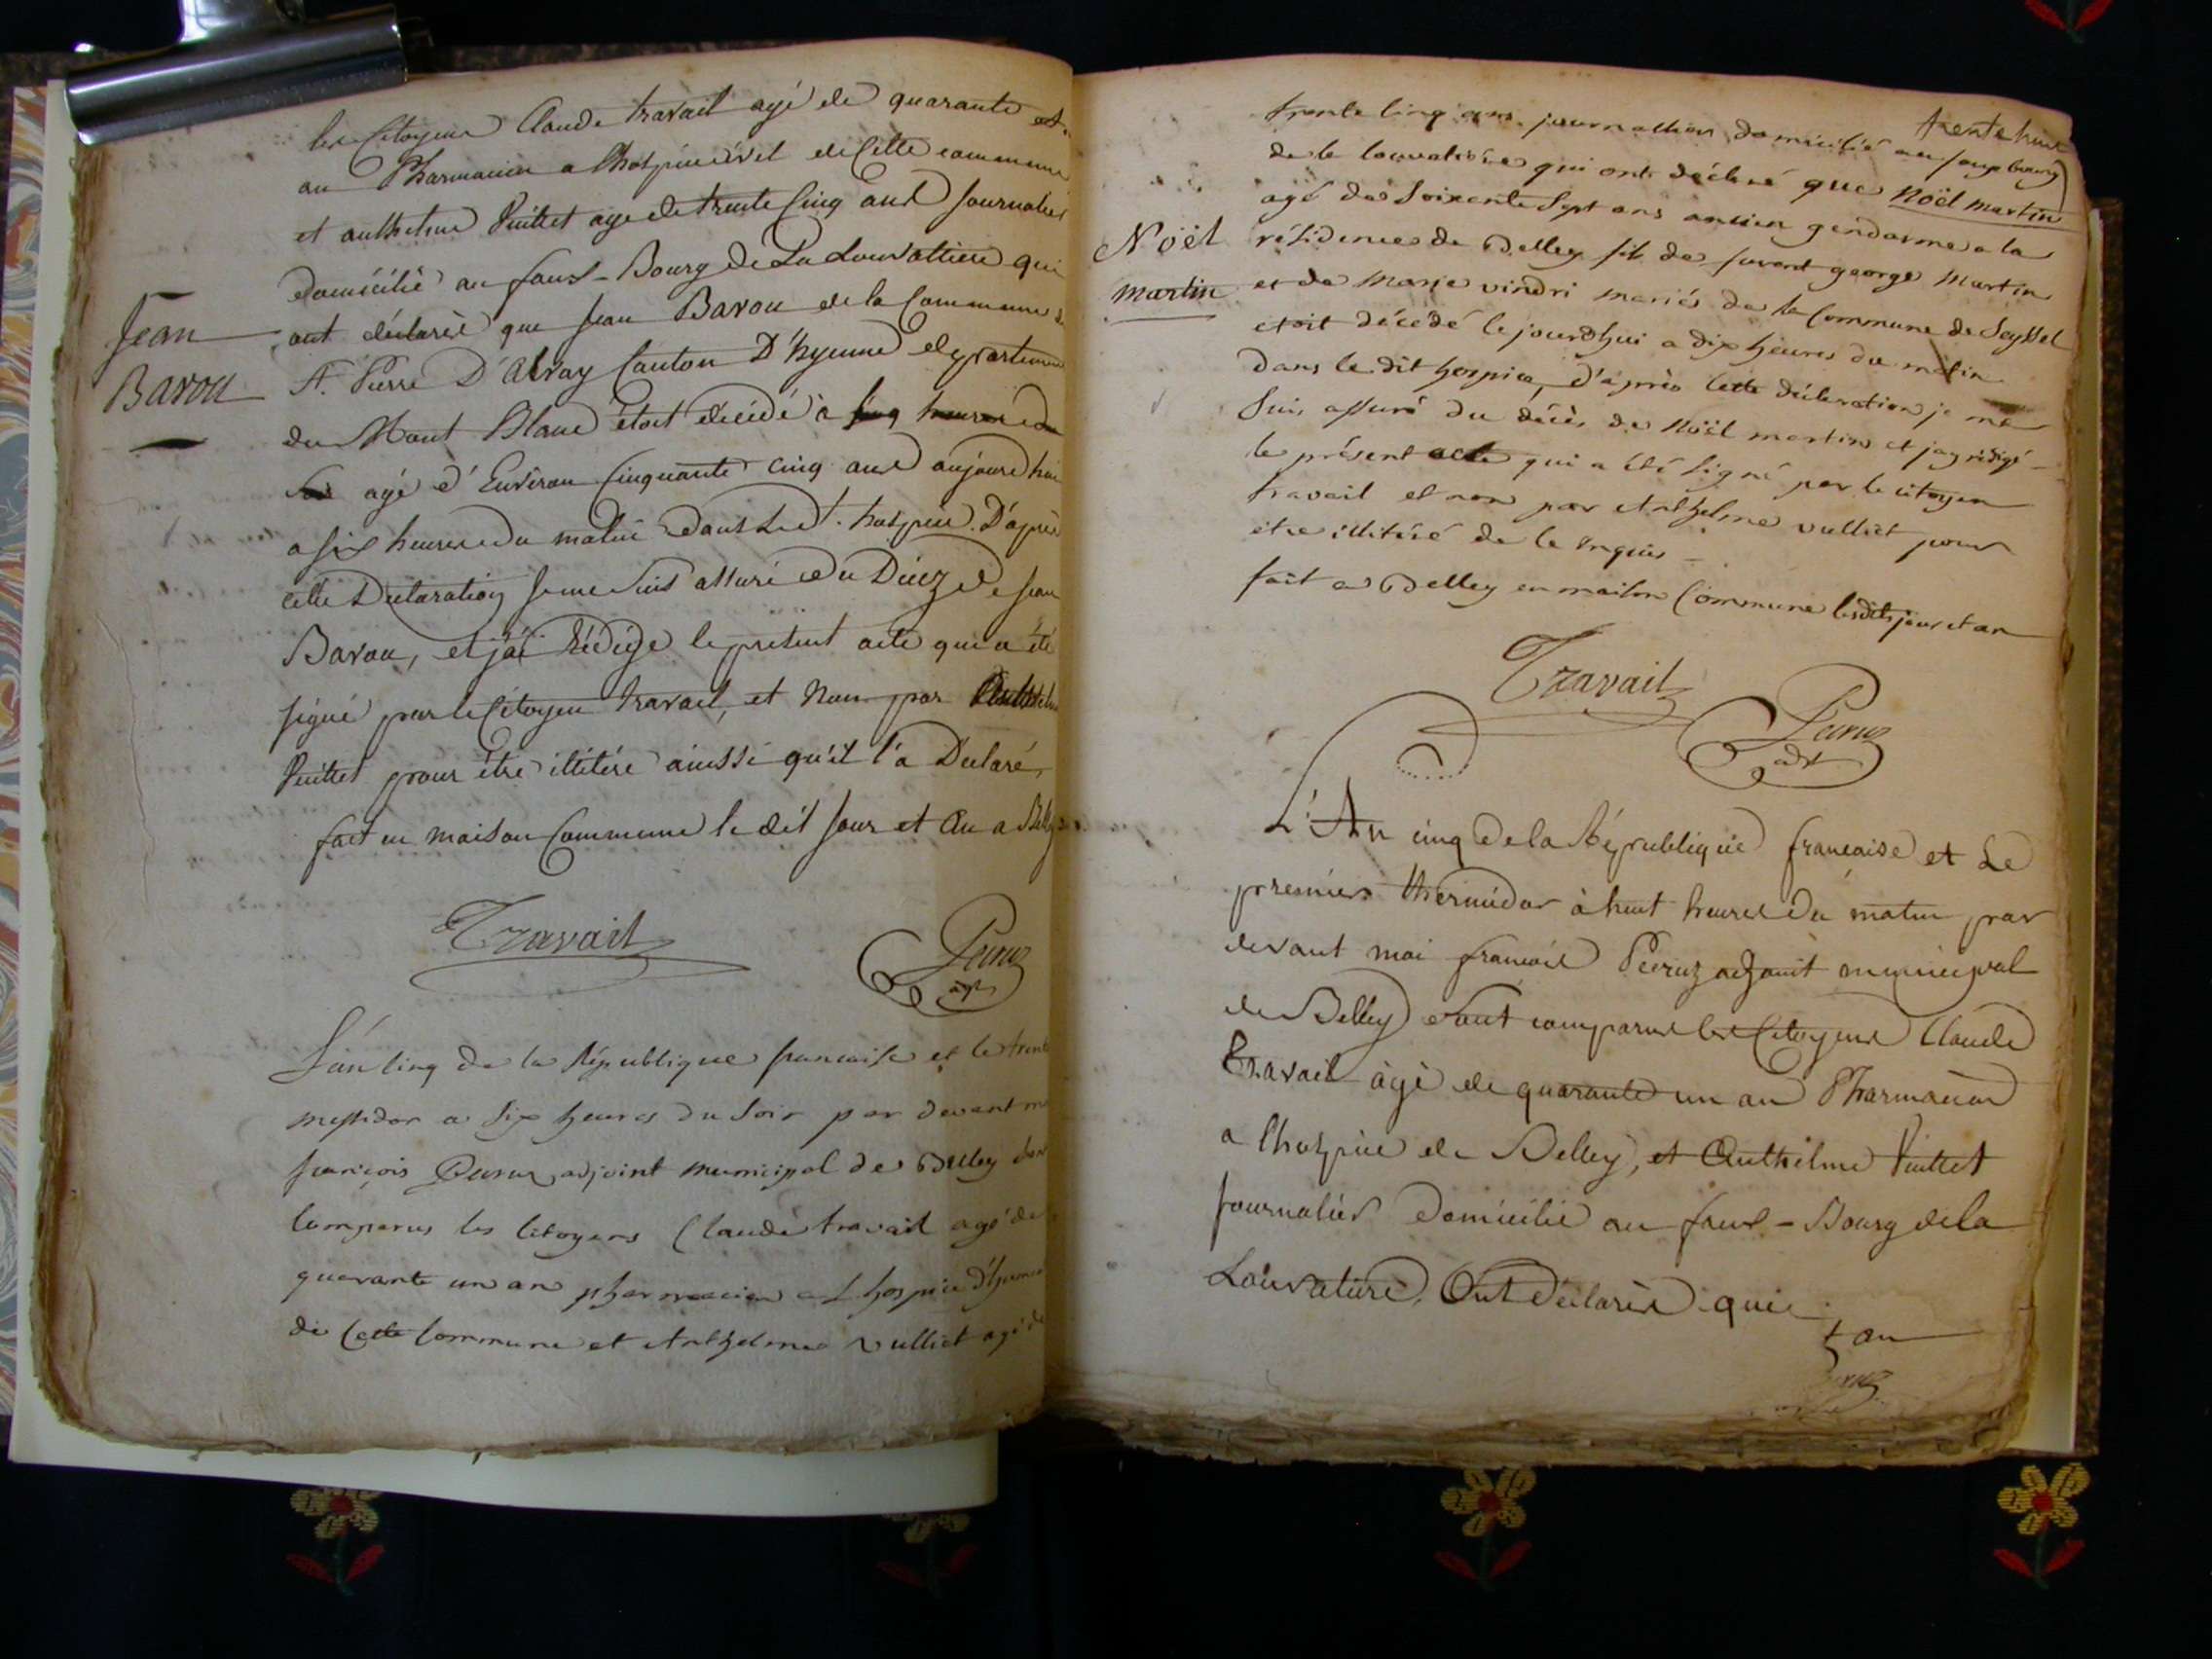 les Citoyens Claude travail agé de quarante et
un Pharmacien a lhospice civil de Cette commune
et anthelme Vuillet age de trente Cinq ans Journalier
domicilié au faux-Bourg de La Louvattiere qui
ont déclaré que Jean Barou de la Commune de
St. Pierre D'Alvay Canton D'hyenne departement
du Mont Blanc étoit décédé à cinq heures du
soir agé d'Environ Cinquante cinq ans aujourd'hui
a six heures du matin dans Led. hospice. D'après
cette Declaration Je me Suis assuré du Décez de Jean
Barou, et j'ai Rédigé le présent acte qui a été
signé par le Citoyen travail, et Non par Anthelme
Vuillet pour être illitéré ainssi qu'il l'a Déclaré,
fait en maison Commune le dit Jour et An a Belley
Jean
Barou
Travail
Peruz
adjt
L'an Cinq de la République francaise et le trente
messidor a Six heures du Soir par devant moi
françois Peruz adjoint municipal de Belley sont
Comparus les Citoyens Claude travail agé de
quarante un an pharmacien a L'hospice d'humanité
de Cette Commune et Anthelme Vulliet agé de
trente huit
trente Cinq ans journallier domicilié au faux bourg
de la louvatière qui ont déclaré que Noël martin
agé de Soixante Sept ans ancien gendarme a la
résidence de Belley fils de feu George Martin
et de Marie vindri mariés de la Commune de Seyssel
etoit décédé le jourd'hui a dix heures du matin
dans le dit hospice, d'après Cette déclaration je me
Suis assuré du décès de Noël martin et jay rédigé
le présent acte qui a été Signé par le citoyen
travail et non par Anthelme vulliet pour
etre illitéré de Ce enquis
fait a Belley en maison Commune lesdits jour et an
Noël
martin
Travail
Peruz
adjt
L'An cinq de la République française et Le
premier thermidor à huit heures du matin par
devant moi françois Peruz adjoint municipal
de Belley sont comparus les Citoyens Claude
Travail âgé de quarante un an Pharmacien
a lhospice de Belley, et Anthelme Vuillet
Journalier Domicilié au faux-Bourg de la
Louvatière, Ont déclaré que